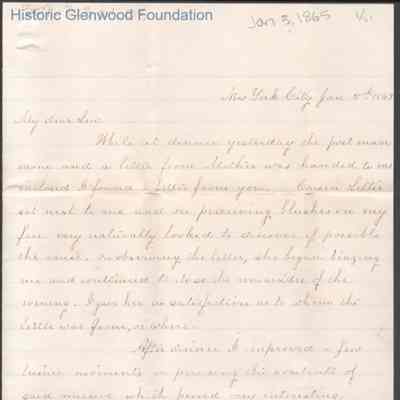 Historic Glenwood Foundation
Jan 3, 1865 1/21
New York City Jan 5th 1865
My dear Sue
While at dinner yesterday the post man
came and a letter from Mother was handed to me
enclosed I found a letter from you. Cousin Lettie
sat next to me and on perceiving blushes on my
face very naturally looked to discover if possible
the cause. Observing the letter, she began teasing
me and continued to do so the remainder of the
evening. I gave her no satisfaction as to whom the
letter was from, or where.
After dinner I improved a few
leisure moments in perusing the contents of
said missive which proved very interesting.